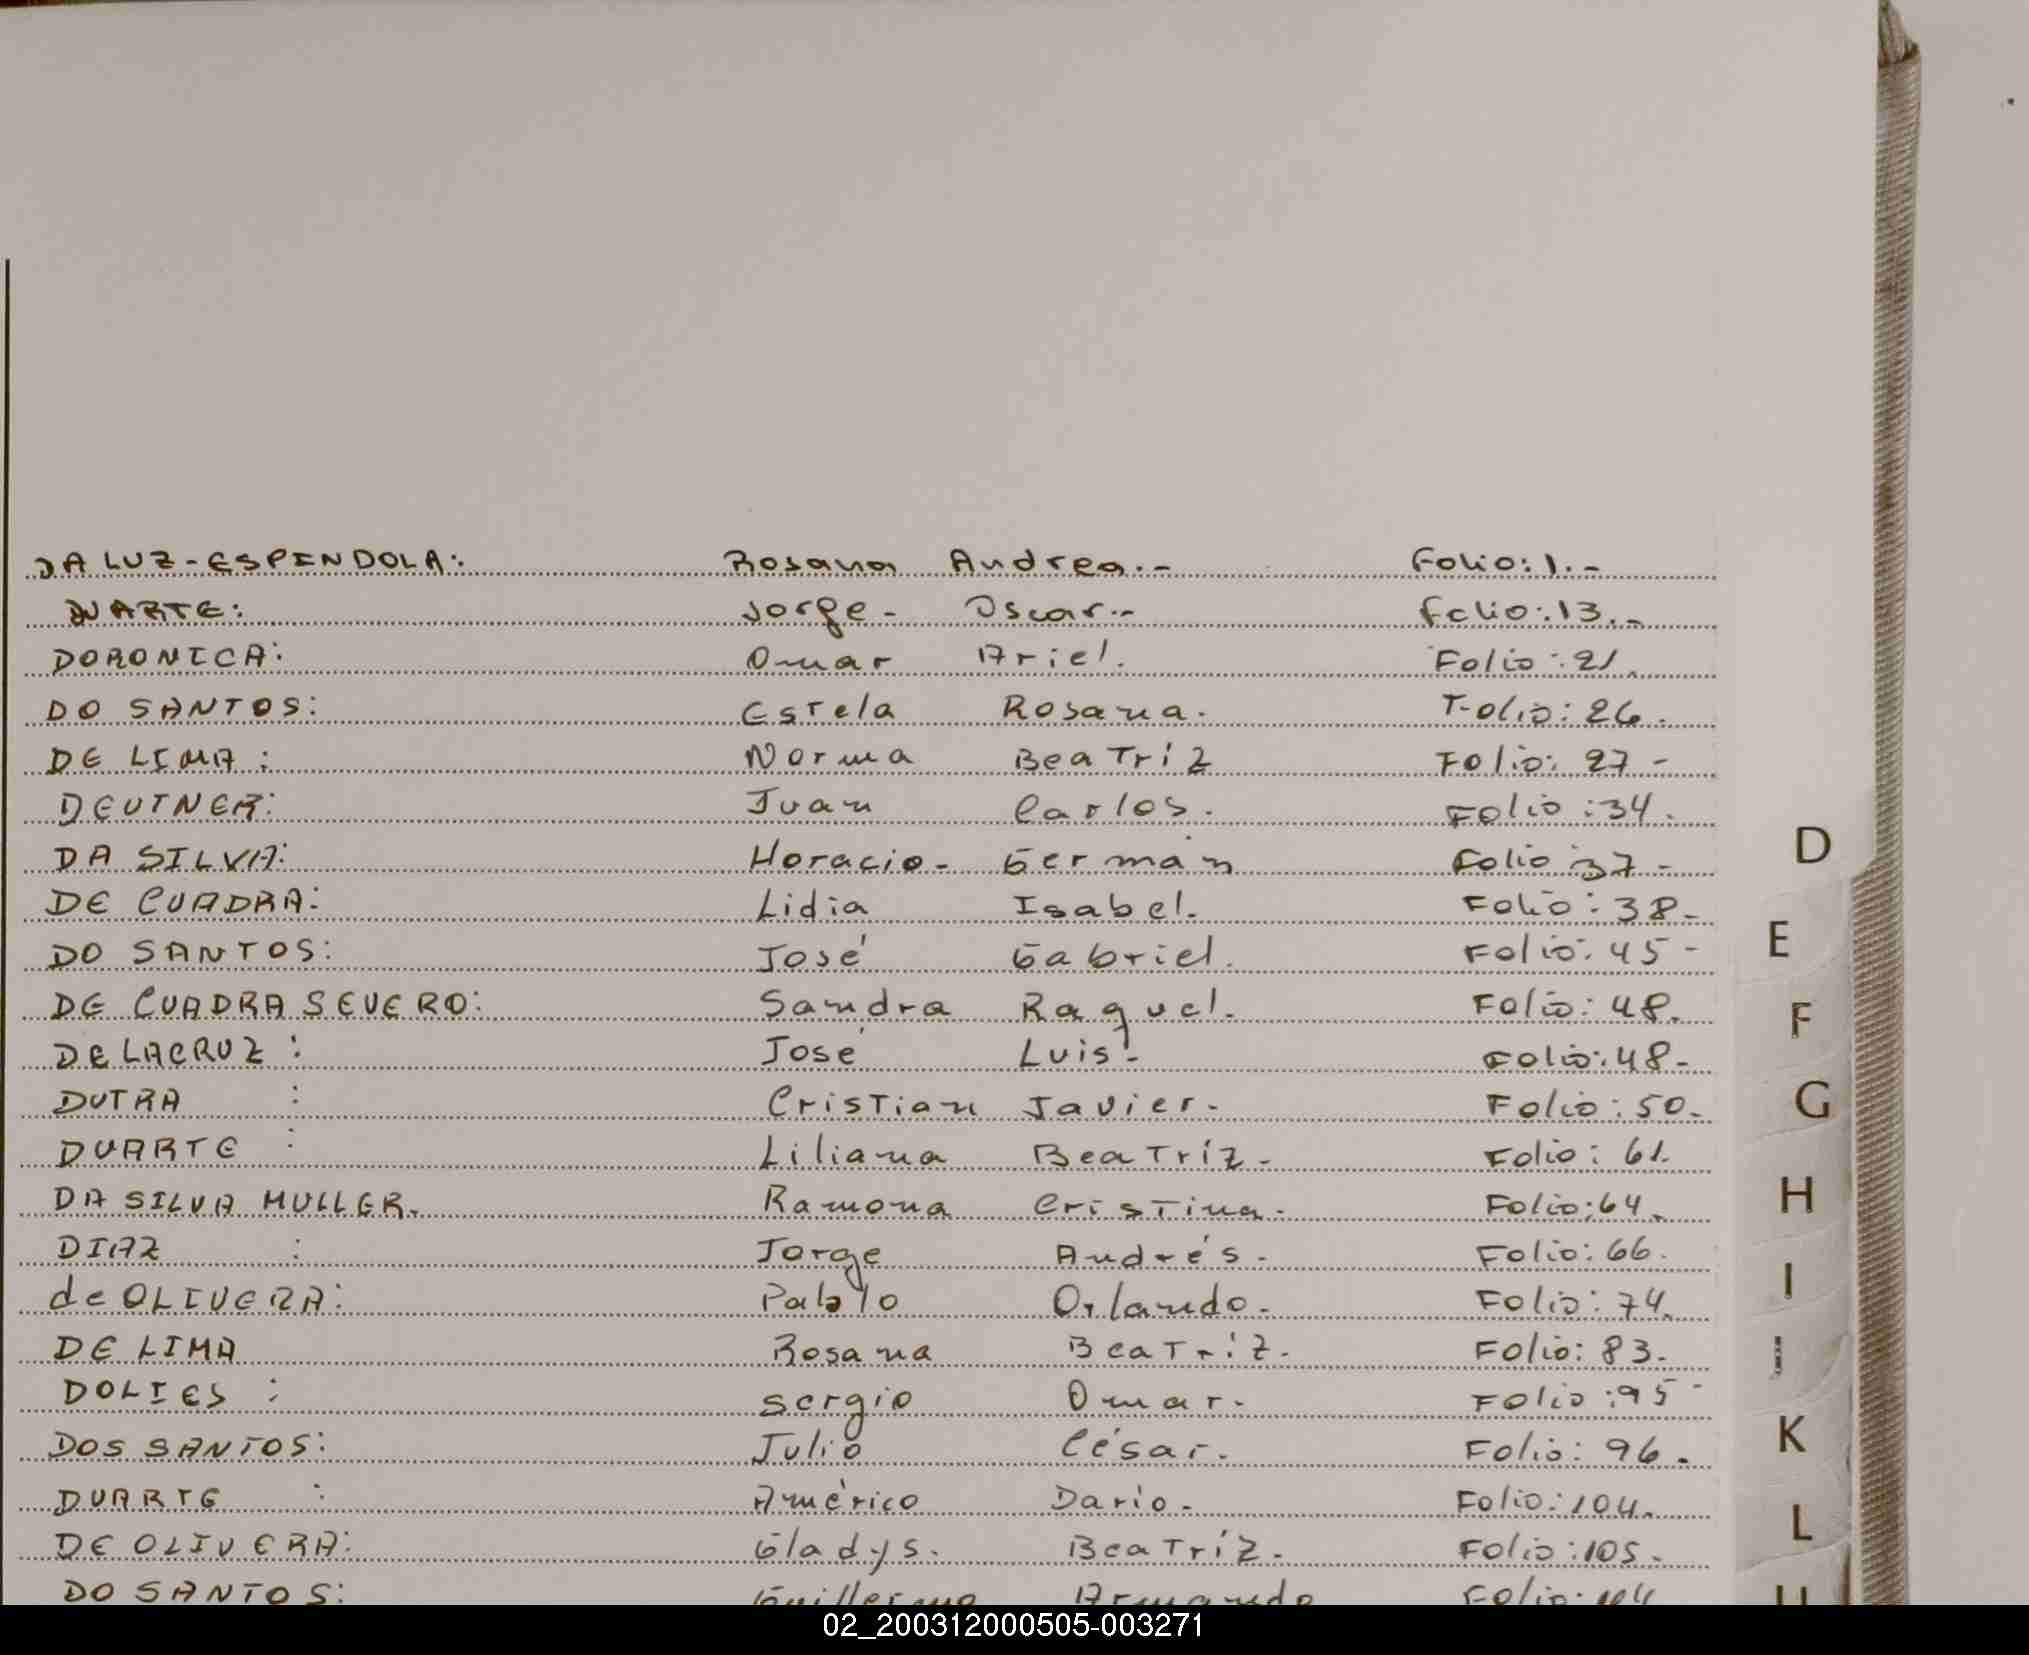 DA LUZ-ESPINDOLA: Rosana Andrea.- Folio:1.-
DUARTE: Jorge- Oscar.- Folio:13.-
DORONICA: Omar Ariel. Folio:21.
DO SANTOS: Estela Rosana. Folio:26.
DE LIMA: Norma Beatríz Folio:27-
DEUTNER: Juan Carlos. Folio:34.
DA SILVA: Horacio- Germán Folio:37-
DE CUADRA: Lidia Isabel. Folio:38-
DO SANTOS: José Gabriel. Folio:45-
DE CUADRA SEVERO: Sandra Raquel. Folio:48.
DE LACRUZ: José Luis- Folio:48-
DUTRA : Cristian Javier- Folio:50-
DUARTE : Liliana Beatríz- Folio:61.
DA SILVA MULLER. Ramona Cristina- Folio:64.
DIAZ : Jorge Andrés- Folio:66.
de OLIVERA: Pablo Orlando- Folio:74.
DE LIMA Rosana Beatríz. Folio:83-
DOLIES : Sergio Omar- Folio:95-
DOS SANTOS: Julio César- Folio:96.
DUARTE : Américo Dario- Folio:104.
DE OLIVERA: Gladys. Beatríz- Folio:105.
DO SANTOS: Guillermo Armando Folio:
D
E
F
G
H
I
J
K
L
02_200312000505-003271